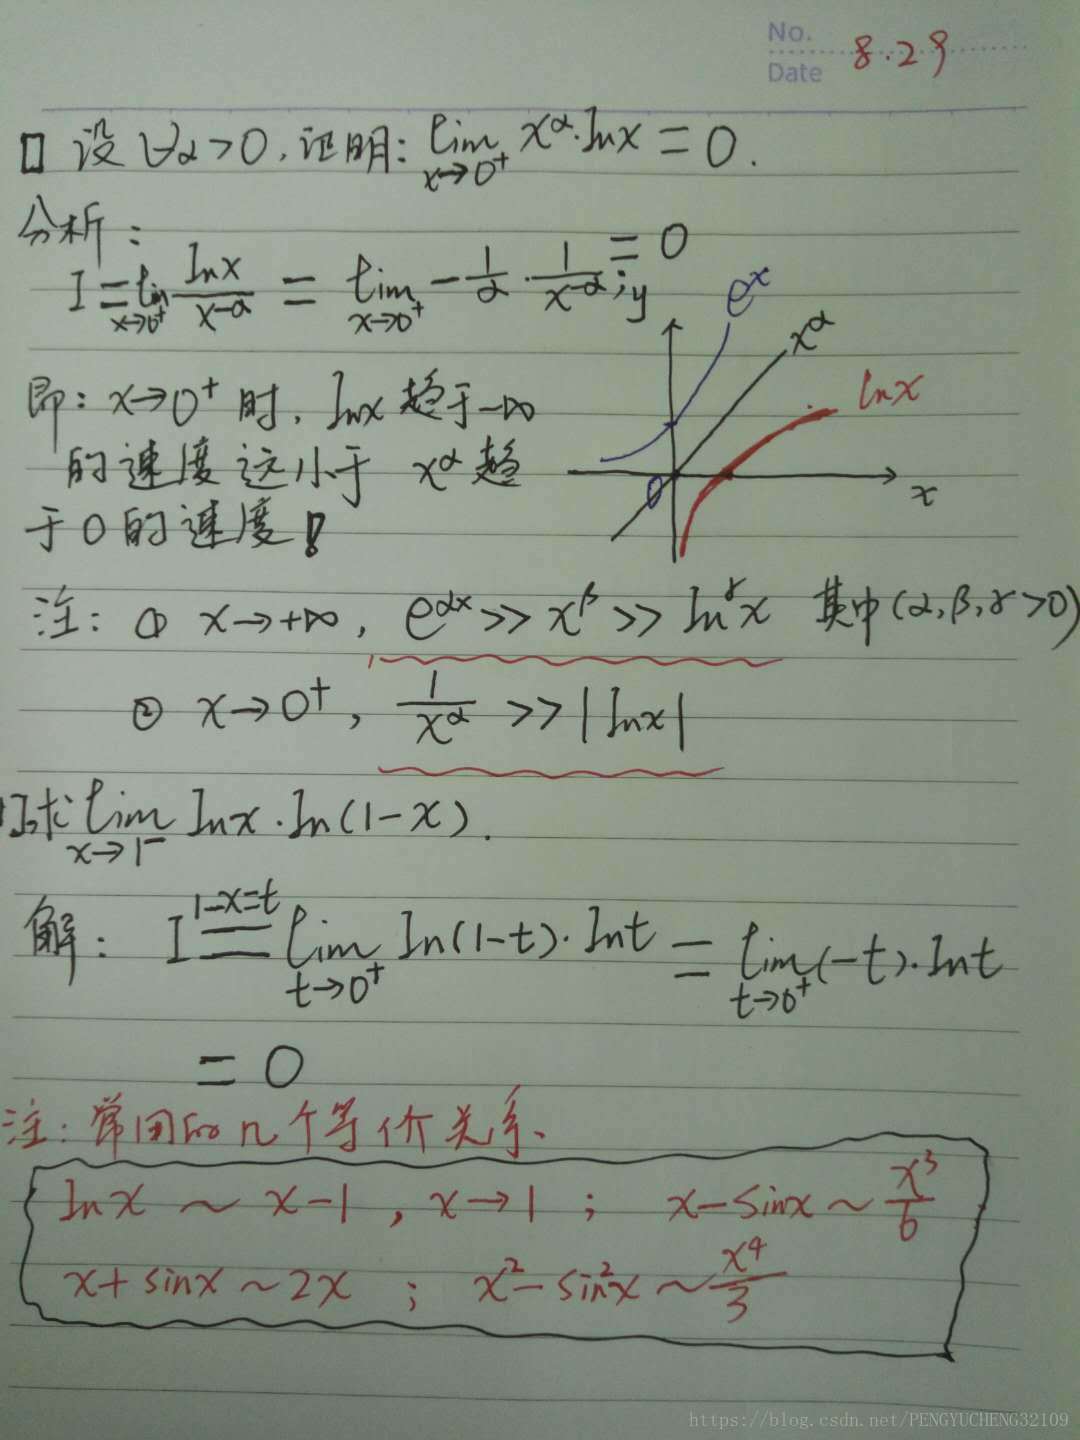 No.
Date 8.29
设 ∀α>0, 证明: lim x→0⁺ x^α·lnx = 0.
分析:
I = lim x→0⁺ lnx/x^-α = lim x→0⁺ -1/α · 1/x^-α = 0;
y
e^x
x^α
lnx
0
x
即: x→0⁺ 时, lnx 趋于-∞
的速度远小于 x^α 趋
于0的速度!
注: ① x→+∞, e^αx >> x^β >> ln^γ x 其中(α,β,γ>0)
② x→0⁺, 1/x^α >> |lnx|
求 lim x→1⁻ lnx·ln(1-x).
解: I =(1-x=t)= lim t→0⁺ ln(1-t)·lnt = lim t→0⁺ (-t)·lnt
= 0
注: 常用的几个等价关系.
lnx ~ x-1, x→1; x-sinx ~ x³/6
x+sinx ~ 2x; x²-sin²x ~ x⁴/3
https://blog.csdn.net/PENGYUCHENG32109